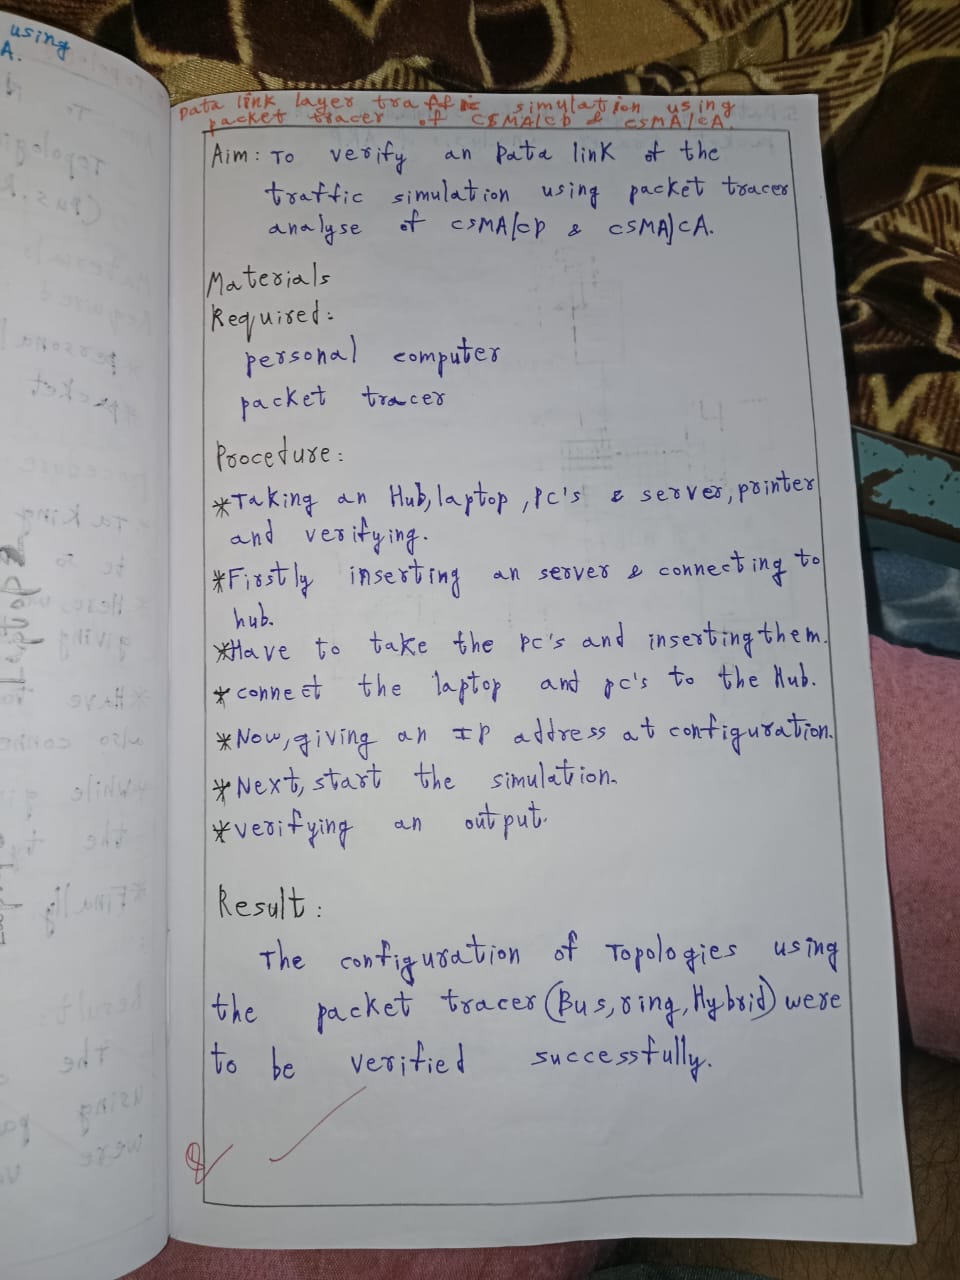 using
A.
Data link layer traffic simulation using
packet tracer of CSMA/CD & CSMA/CA.
Aim: To verify an Data link of the
traffic simulation using packet tracer
analyse of CSMA/CD & CSMA/CA.
Materials
Required:
personal computer
packet tracer
Procedure:
*Taking an Hub, laptop, PC's & server, printer
and verifying.
*Firstly inserting an server & connecting to
hub.
*Have to take the PC's and inserting them.
*connect the laptop and pc's to the Hub.
*Now, giving an IP address at configuration.
*Next, start the simulation.
*verifying an output.
Result:
The configuration of Topologies using
the packet tracer (Bus, ring, Hybrid) were
to be verified successfully.